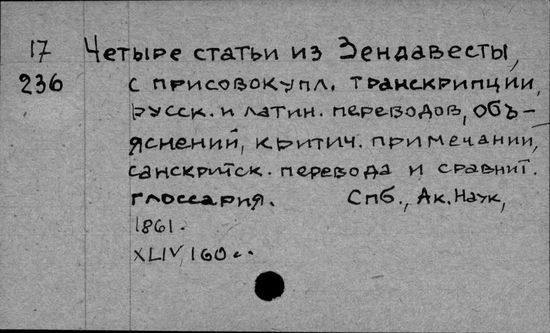 17 Четыре статьи из Зендавесты,
236 с присовокупл. транскрипции,
русск. и латин. переводов, объ-
яснений, критич. примечании,
санскритск. перевода и сравнит.
глоссария. Спб., Ак. Наук,
1861.
XLIV, 160 с.